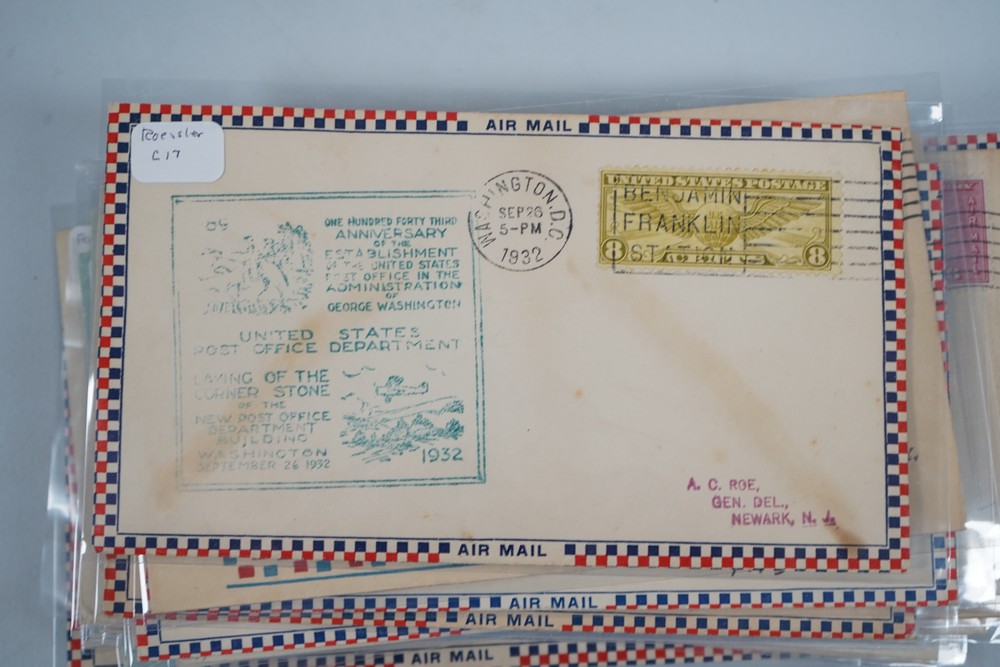 Roessler
C17
AIR MAIL
ONE HUNDRED FORTY THIRD
ANNIVERSARY
OF THE
ESTABLISHMENT
OF THE UNITED STATES
POST OFFICE IN THE
ADMINISTRATION
OF
GEORGE WASHINGTON
UNITED STATES
POST OFFICE DEPARTMENT
LAYING OF THE
CORNER STONE
OF THE
NEW POST OFFICE
DEPARTMENT
BUILDING
WASHINGTON
SEPTEMBER 26 1932
1932
WASHINGTON, D.C.
SEP 26
5-PM
1932
UNITED STATES POSTAGE
BENJAMIN
FRANKLIN
8 8
A. C. ROE,
GEN. DEL.,
NEWARK, N. J.
AIR MAIL
AIR MAIL
AIR MAIL
AIR MAIL